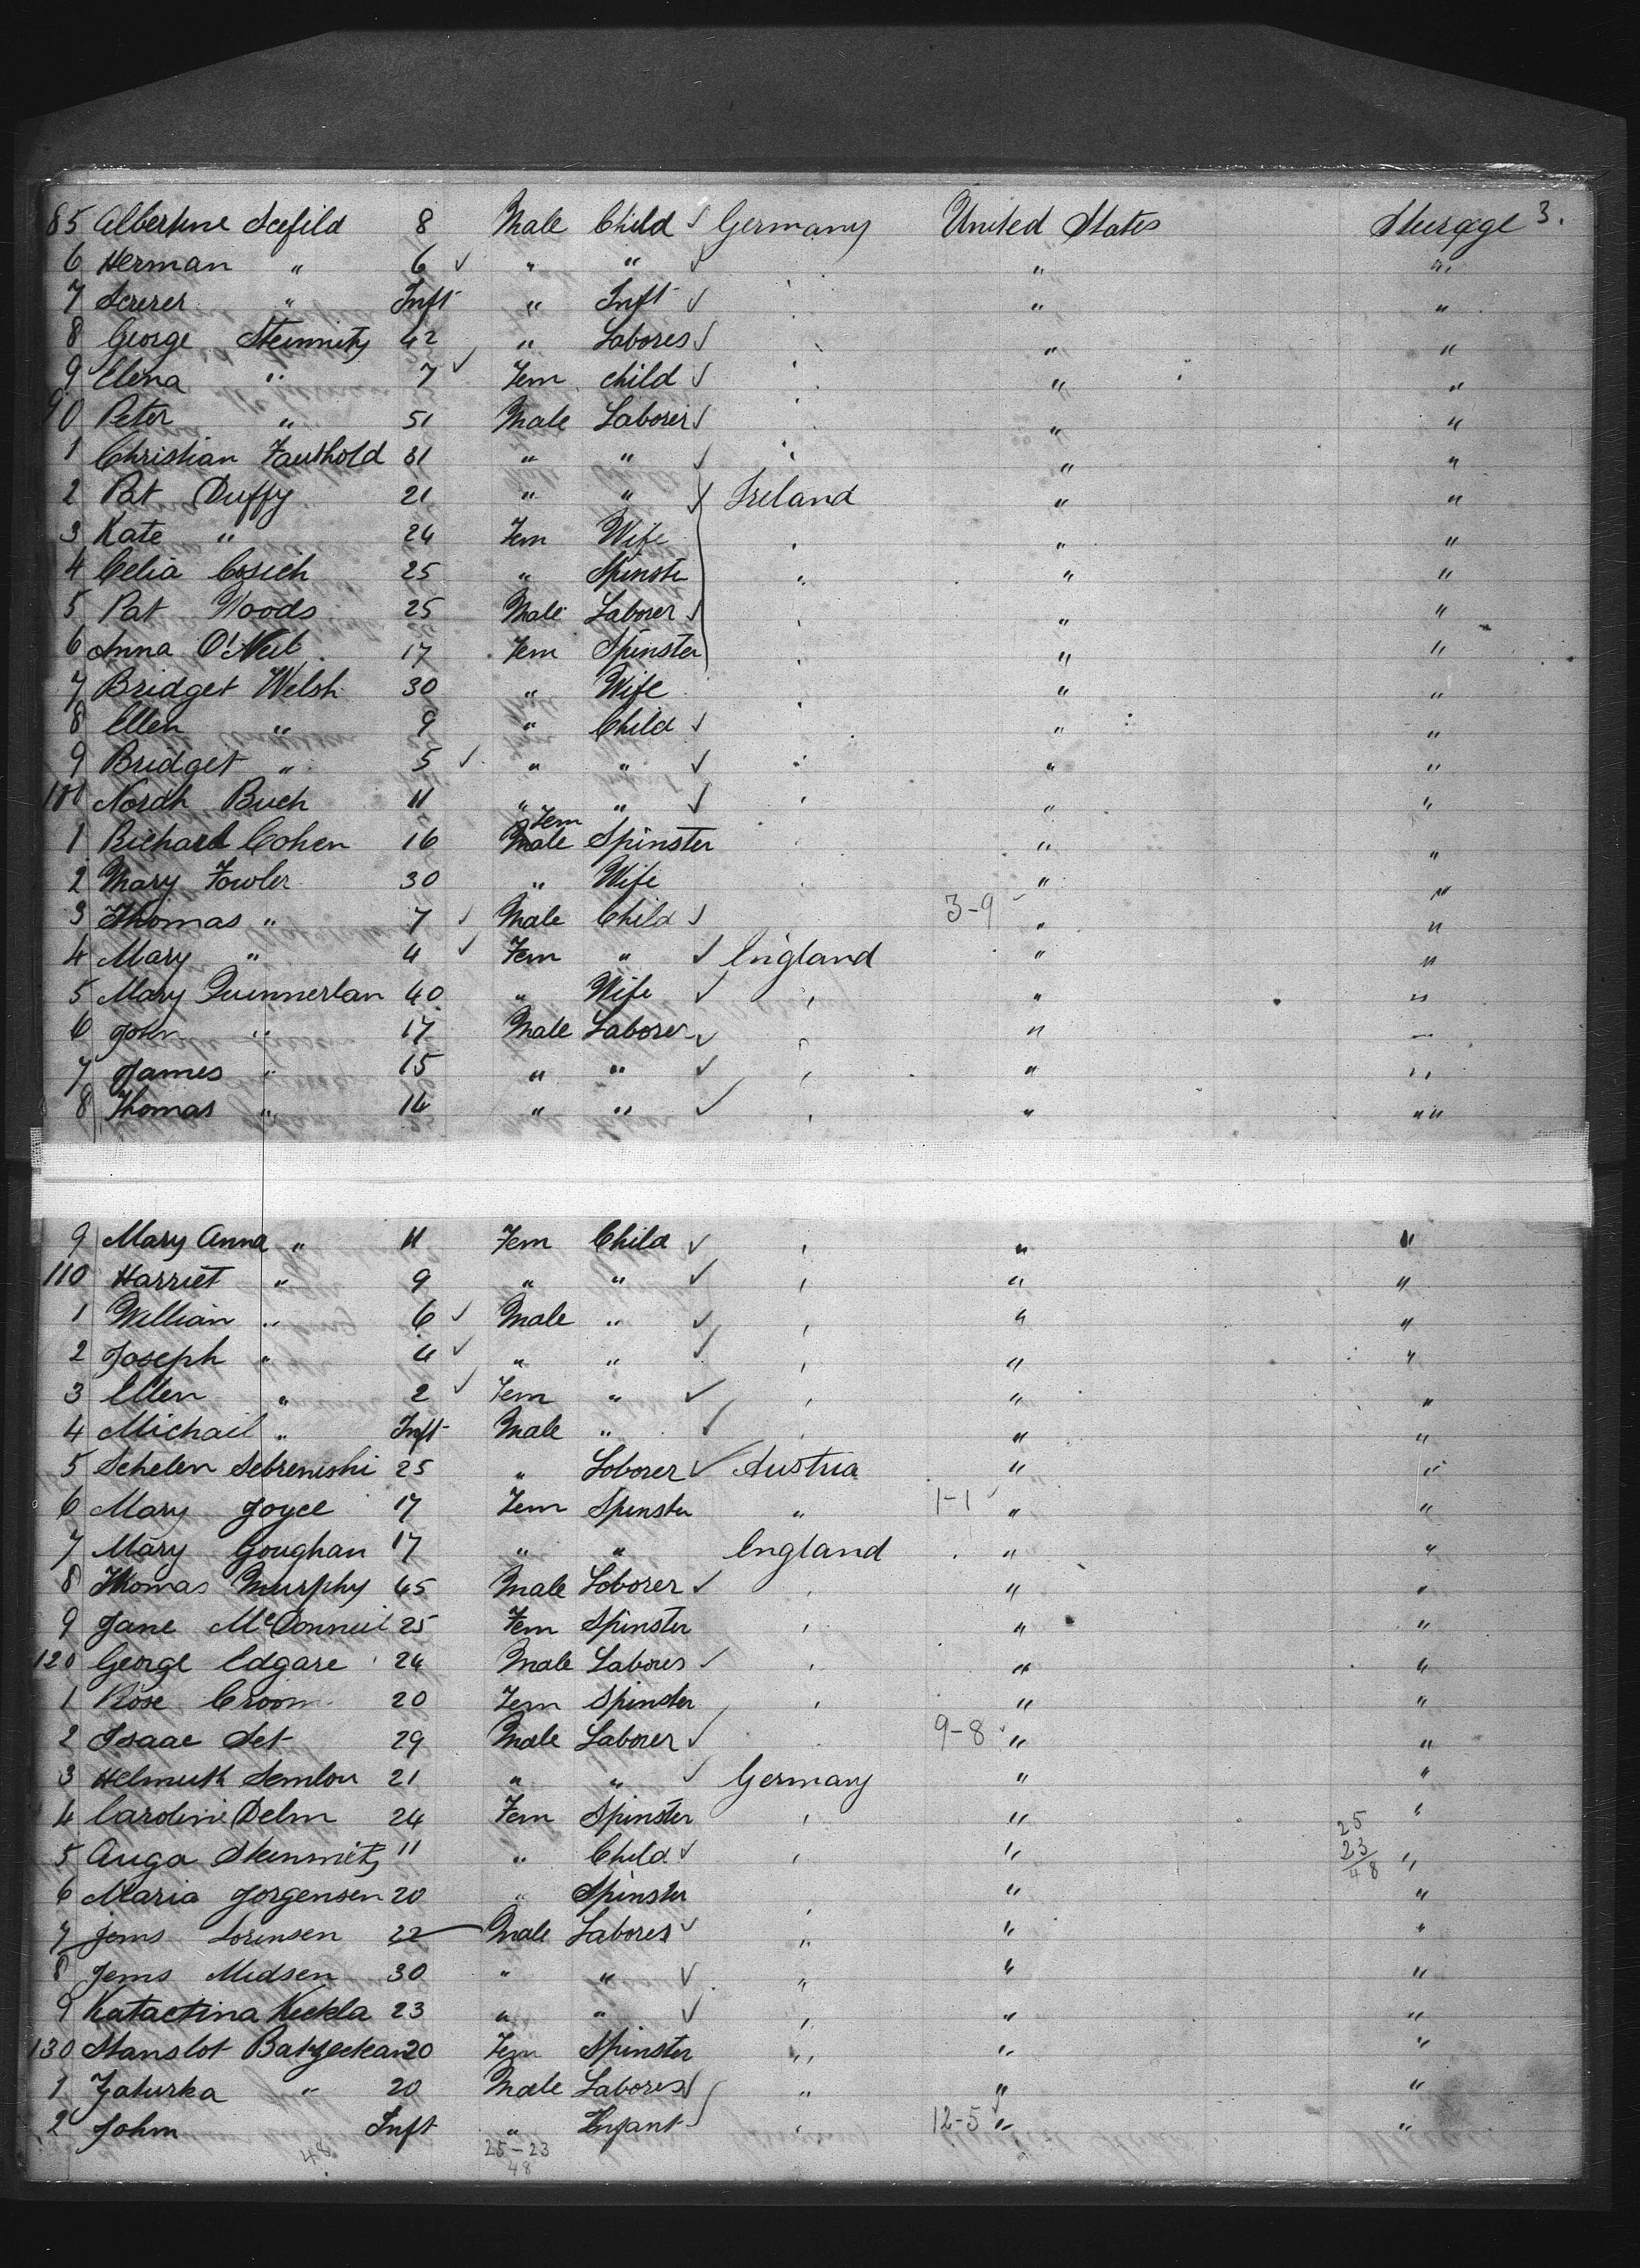 3.
85 Albertine Seefild 8 Male Child ✓ Germany United States Steerage
6 Herman " 6 ✓ " " ✓ " " "
7 " Inft " Inft ✓ " " "
8 George Steinnitz 42 " Laborer ✓ " " "
9 Elena " 7 ✓ Fem child ✓ " " "
90 Peter " 51 Male Laborer ✓ " " "
1 Christian Fauthold 31 " " ✓ " " "
2 Pat Duffy 21 " " ✓ Ireland " "
3 Kate " 24 Fem Wife " " "
4 Celia Cosich 25 " Spinster " " "
5 Pat Woods 25 Male Laborer ✓ " " "
6 Anna O'Neil 17 Fem Spinster " " "
7 Bridget Welsh 30 " Wife " " "
8 Ellen " 9 " Child ✓ " " "
9 Bridget " 5 ✓ " " ✓ " " "
100 Norah Buch 11 " " ✓ " " "
Fem
1 Richard Cohen 16 Male Spinster " " "
2 Mary Fowler 30 " Wife " " "
3 Thomas " 7 ✓ Male Child ✓ 3-9 " "
4 Mary " 4 ✓ Fem " ✓ England " "
5 Mary Quinnerlan 40 " Wife ✓ " " "
6 John " 17 Male Laborer ✓ " " "
7 James " 15 " " ✓ " " "
8 Thomas " 14 " " ✓ " " "
9 Mary Anna " 11 Fem Child ✓ " " "
110 Harriet " 9 " " ✓ " " "
1 William " 6 ✓ Male " ✓ " " "
2 Joseph " 4 ✓ " " ✓ " " "
3 Ellen " 2 ✓ Fem " ✓ " " "
4 Michael " Inft Male " ✓ " " "
5 Schelen Sebrenishi 25 " Loborer ✓ Austria " "
6 Mary Joyce 17 Fem Spinster " 1-1 " "
7 Mary Goughan 17 " " England " "
8 Thomas Murphy 45 Male Loborer ✓ " " "
9 Jane McDonneil 25 Fem Spinster " " "
120 George Edgare 24 Male Laborer ✓ " " "
1 Rose Croom 20 Fem Spinster " " "
2 Isaac Set 29 Male Laborer ✓ 9-8 " "
3 Helmuth Semlou 21 " " ✓ Germany " "
4 Caroline Delm 24 Fem Spinster " " "
25
23
48
5 Auga Steinnitz 11 " Child ✓ " " "
6 Maria Jorgensen 20 " Spinster " " "
7 Jems Lorensen 22 Male Laborer ✓ " " "
8 Jems Midsen 30 " " ✓ " " "
9 Katactina Keekla 23 " " ✓ " " "
130 Stanslot 20 Fem Spinster " " "
1 Zaturka " 20 Male Laborer ✓ " " "
2 John Inft " Infant " 12-5 " "
48 25-23
48